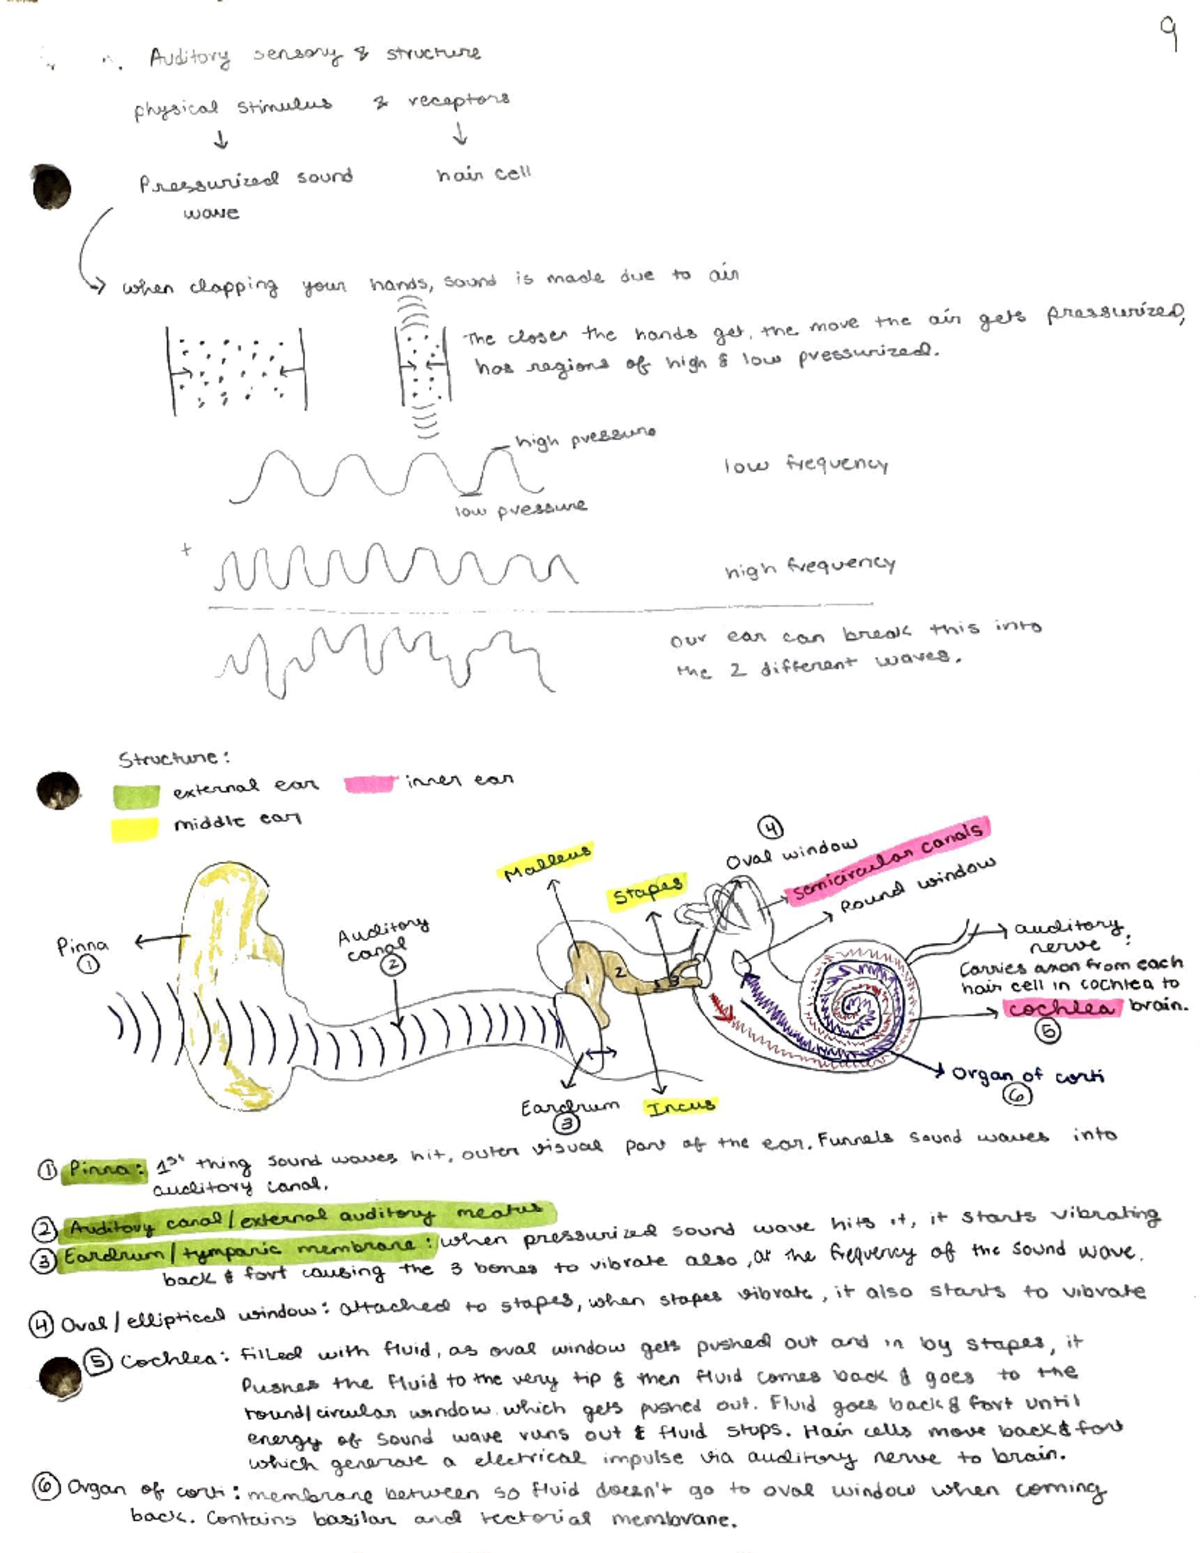 9
Auditory sensory & structure
physical stimulus & receptors
Pressurized sound
wave
hair cell
when clapping your hands, sound is made due to air
The closer the hands get, the move the air gets pressurized,
has regions of high & low pressurized.
high pressure
low pressure
low frequency
+
high frequency
our ear can break this into
the 2 different waves.
Structure:
external ear
inner ear
middle ear
Malleus
Stapes
4
Oval window
semicircular canals
Round window
Pinna
1
Auditory
canal
2
2
3
auditory
nerve:
Carries axon from each
hair cell in cochlea to
cochlea brain.
5
Organ of corti
6
Eardrum
3
Incus
1 Pinna: 1st thing sound waves hit, outer visual part of the ear. Funnels sound waves into
auditory canal.
2 Auditory canal/external auditory meatus
3 Eardrum/tympanic membrane: when pressurized sound wave hits it, it starts vibrating
back & fort causing the 3 bones to vibrate also, at the frequency of the sound wave.
4 Oval/elliptical window: attached to stapes, when stapes vibrate, it also starts to vibrate
5 Cochlea: Filled with fluid, as oval window gets pushed out and in by stapes, it
Pushes the fluid to the very tip & then fluid comes back & goes to the
round/circular window. which gets pushed out. Fluid goes back & fort until
energy of sound wave runs out & fluid stops. Hair cells move back & fort
which generate a electrical impulse via auditory nerve to brain.
6 Organ of corti: membrane between so fluid doesn't go to oval window when coming
back. Contains basilar and tectorial membrane.